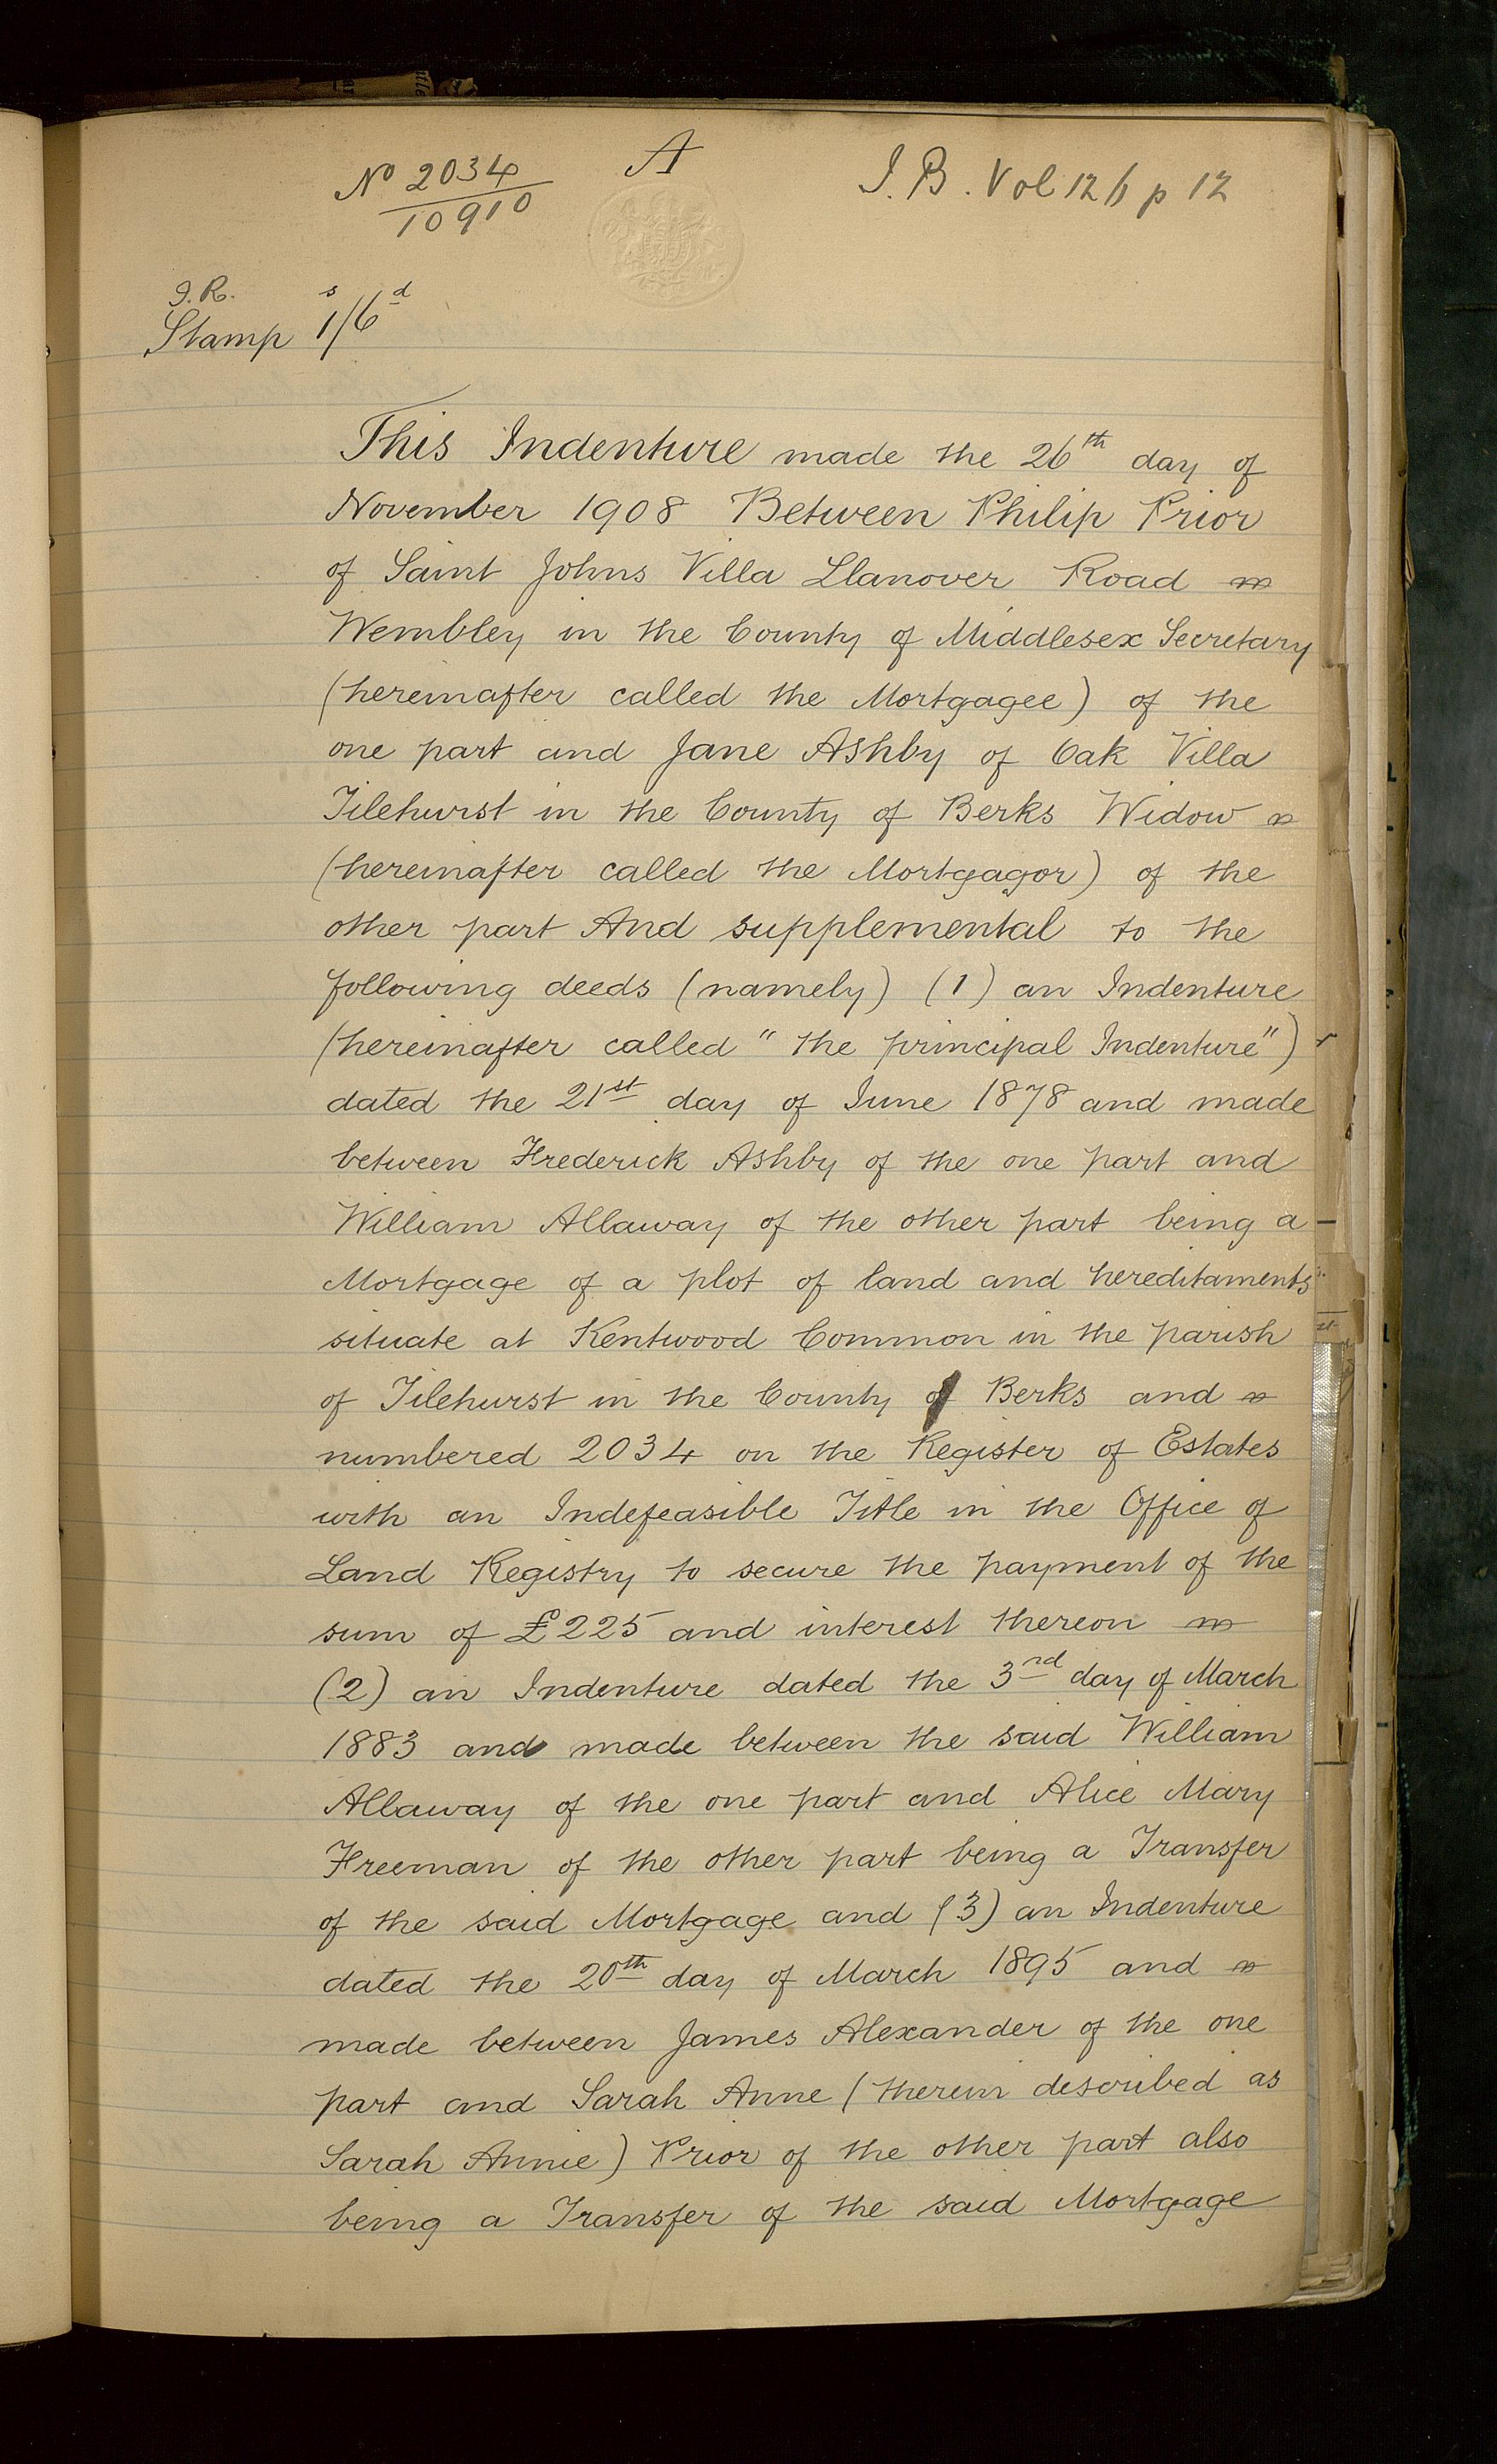 Nº 2034
10910
A
I.B. Vol 12 p 12
I.R.
Stamp 1s/6d
This Indenture made the 26th day of
November 1908 Between Philip Prior
of Saint Johns Villa Llanover Road
Wembley in the County of Middlesex Secretary
(hereinafter called the Mortgagee) of the
one part and Jane Ashby of Oak Villa
Tilehurst in the County of Berks Widow
(hereinafter called the Mortgagor) of the
other part And supplemental to the
following deeds (namely) (1) an Indenture
(hereinafter called "the principal Indenture")
dated the 21st day of June 1878 and made
between Frederick Ashby of the one part and
William Allaway of the other part being a
Mortgage of a plot of land and hereditaments
situate at Kentwood Common in the parish
of Tilehurst in the County of Berks and
numbered 2034 on the Register of Estates
with an Indefeasible Title in the Office of
Land Registry to secure the payment of the
sum of £225 and interest thereon
(2) an Indenture dated the 3rd day of March
1883 and made between the said William
Allaway of the one part and Alice Mary
Freeman of the other part being a Transfer
of the said Mortgage and (3) an Indenture
dated the 20th day of March 1895 and
made between James Alexander of the one
part and Sarah Anne (therein described as
Sarah Annie) Prior of the other part also
being a Transfer of the said Mortgage